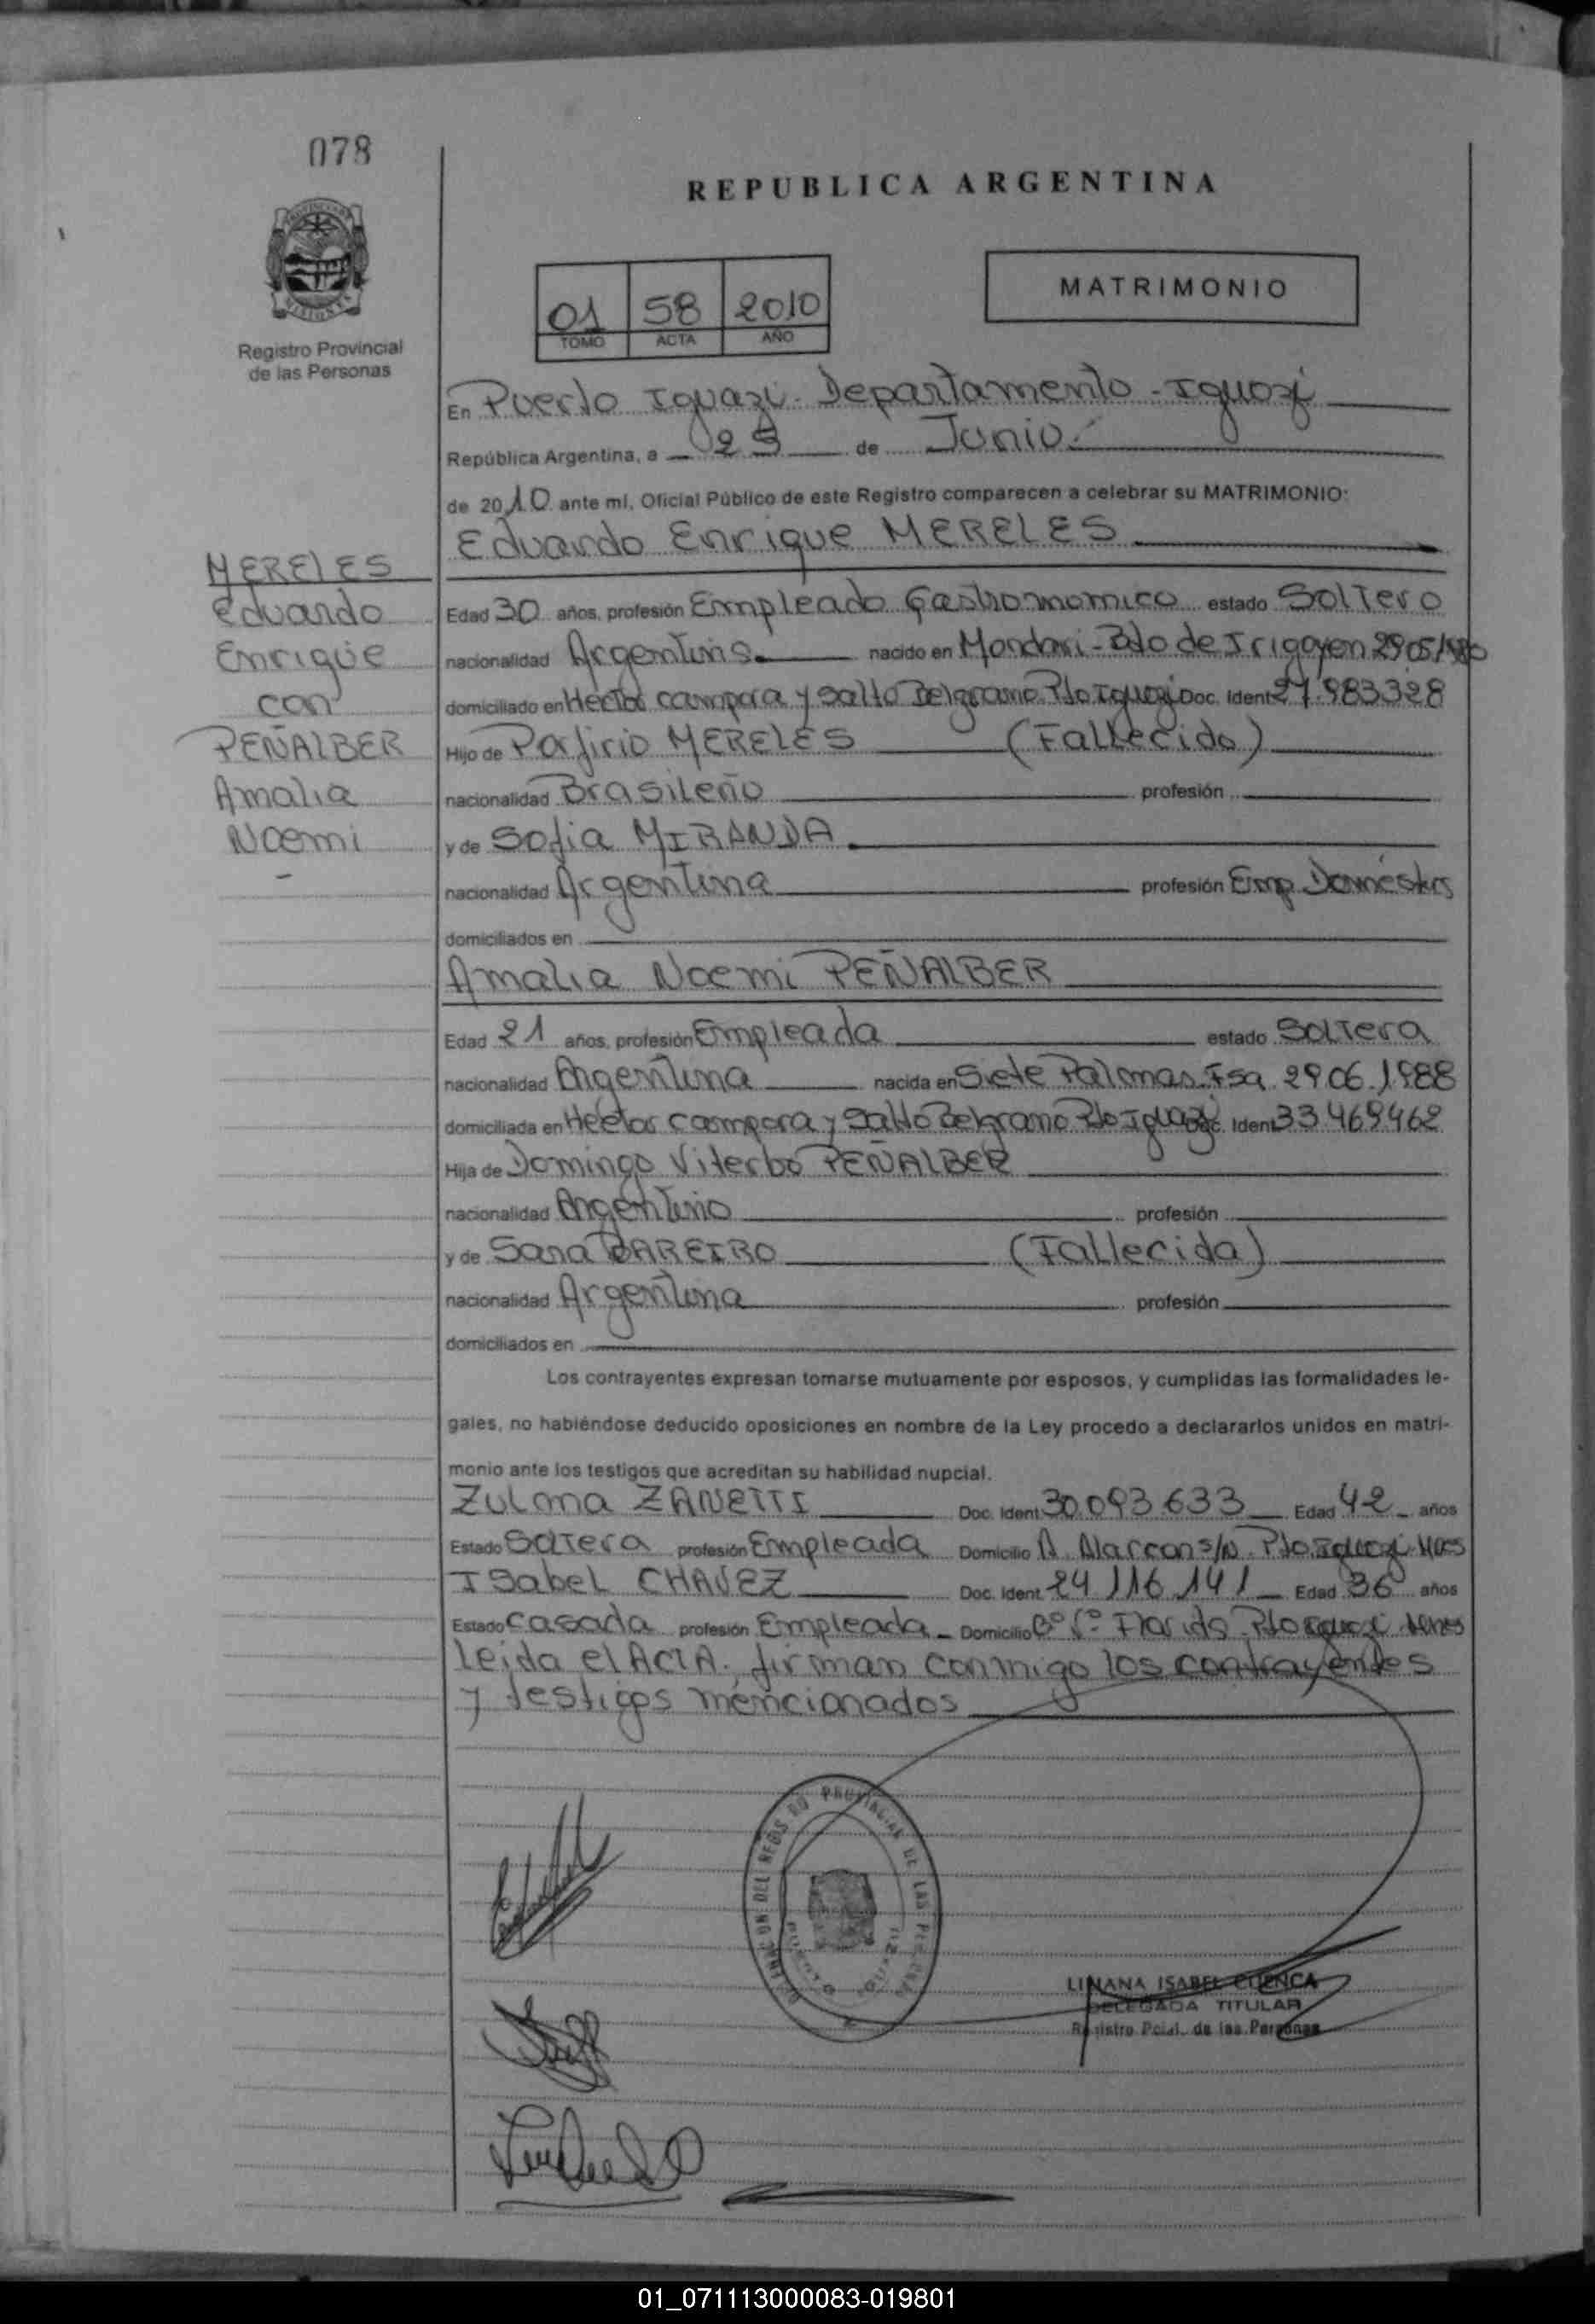 078
REPUBLICA ARGENTINA
MATRIMONIO
01 58 2010
TOMO ACTA AÑO
Registro Provincial
de las Personas
En Puerto Iguazú - Departamento - Iguazú
República Argentina, a 25 de Junio
de 2010 ante mí, Oficial Público de este Registro comparecen a celebrar su MATRIMONIO:
Eduardo Enrique MERELES
MERELES
Eduardo
Enrique
con
PEÑALBER
Amalia
Noemi
Edad 30 años, profesión Empleado Gastronomico estado Soltero
nacionalidad Argentina nacido en - Bdo de Irigoyen 29.05/1980
domiciliado en Hector campora y Salto Belgrano Pto Iguazú Doc. Ident 27.983328
Hijo de Porfirio MERELES (Fallecido)
nacionalidad Brasileño profesión
y de Sofia MIRANDA
nacionalidad Argentina profesión Emp Doméstica
domiciliados en
Amalia Noemi PEÑALBER
Edad 21 años, profesión Empleada estado Soltera
nacionalidad Argentina nacida en Siete Palmas. Fsa 29.06.1988
domiciliada en Hector Campora y Salto Belgrano Pto Iguazú Doc. Ident 33.469462
Hija de Domingo Viterbo PEÑALBER
nacionalidad Argentino profesión
y de Sara BAREIRO (Fallecida)
nacionalidad Argentina profesión
domiciliados en
Los contrayentes expresan tomarse mutuamente por esposos, y cumplidas las formalidades le-
gales, no habiéndose deducido oposiciones en nombre de la Ley procedo a declararlos unidos en matri-
monio ante los testigos que acreditan su habilidad nupcial.
Zulma ZANETTI Doc. Ident. 30.093.633 Edad 42 años
Estado Soltera profesión Empleada Domicilio A. Narcon s/n. Pto. Iguazú
Isabel CHAVEZ Doc. Ident. 24 116 141 Edad 36 años
Estado Casada profesión Empleada Domicilio Pto Iguazú
Leida el ACTA, firman conmigo los contrayentes
y testigos mencionados
LILIANA ISABEL CUENCA
DELEGADA TITULAR
Registro Pcial. de las Personas
01_071113000083-019801